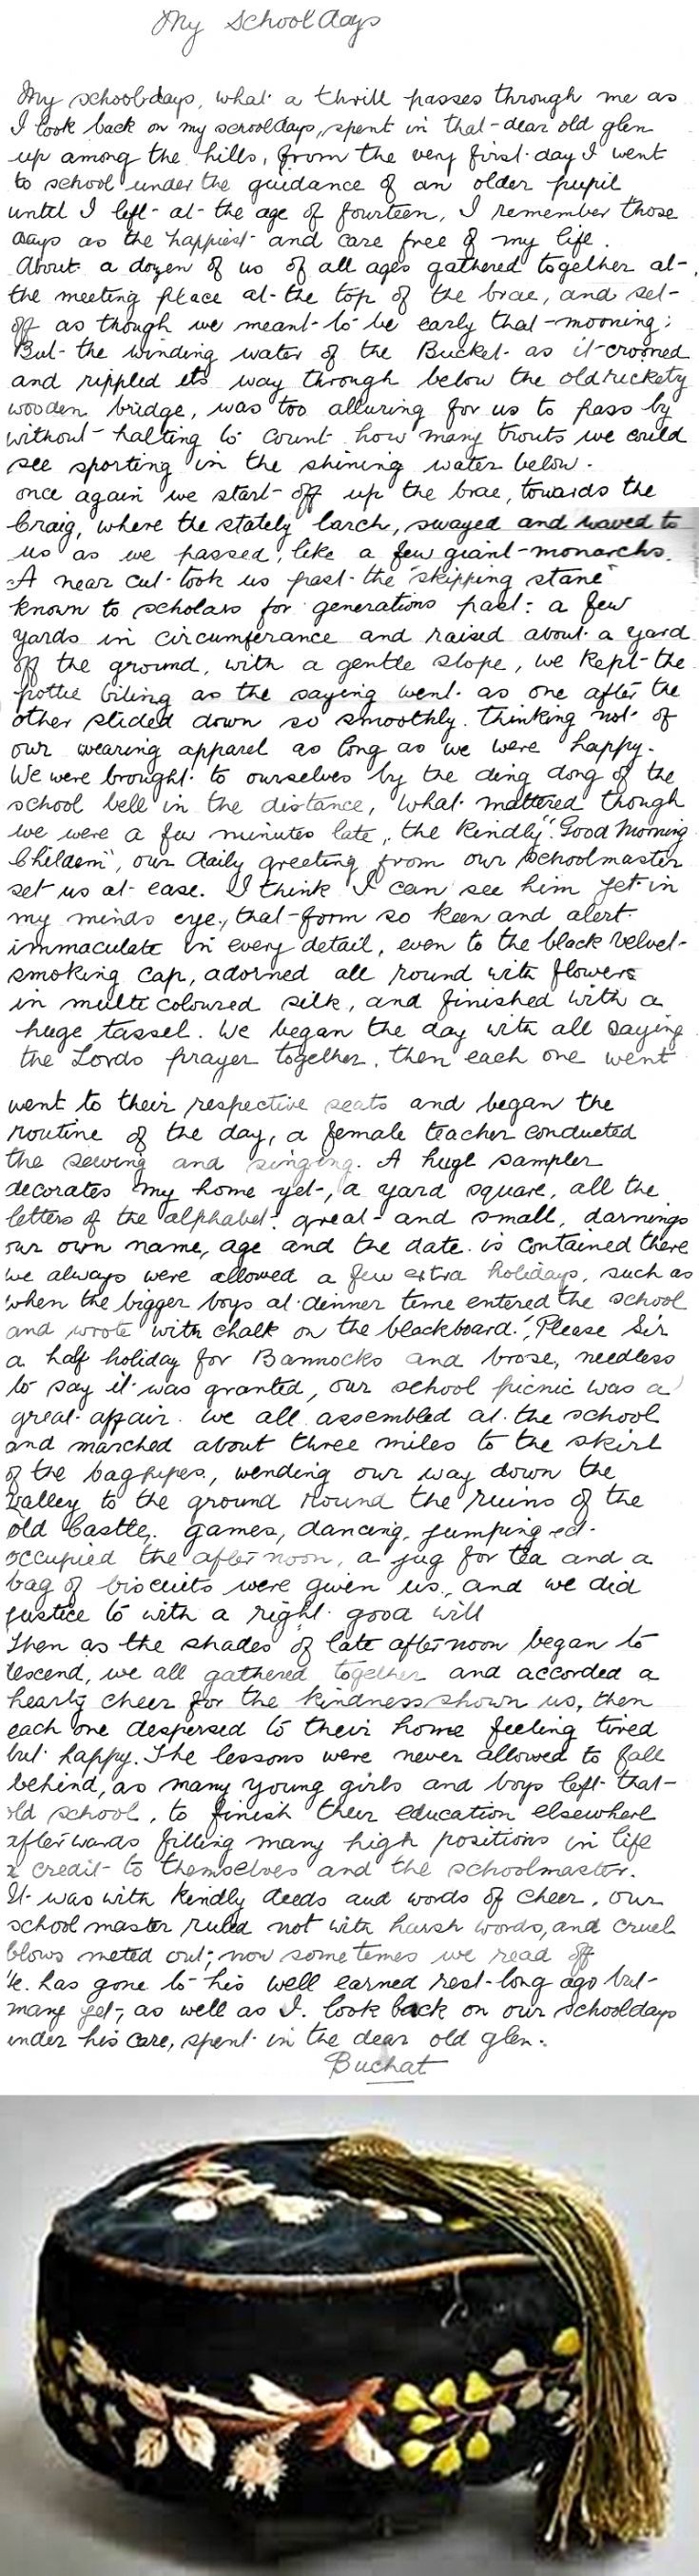 My School days
My schooldays, what a thrill passes through me as
I look back on my scrooldays, spent in that dear old glen
up among the hills, from the very first day I went
to school under the guidance of an older pupil
until I left at the age of fourteen, I remember those
days as the happiest and care free of my life.
About a dozen of us of all ages gathered together at
the meeting place at the top of the brae, and set
off as though we meant to be early that mooning;
But the winding water of the Bucket as it crooned
and rippled its way through below the old rickety
wooden bridge, was too alluring for us to pass by
without halting to count how many trouts we could
see sporting in the shining water below.
once again we start off up the brae, towards the
Craig, where the stately larch, swayed and waved to
us as we passed, like a few giant monarchs.
A near cut took us past the "skipping stane"
known to scholars for generations past: a few
yards in circumferance and raised about a yard
off the ground, with a gentle slope, we kept the
pottie biling as the saying went as one after the
other slided down so smoothly. Thinking not of
our wearing apparel as long as we were happy.
We were brought to ourselves by the ding dong of the
school bell in the distance, what mattered though
we were a few minutes late, the kindly "Good Morning
Childern", our daily greeting from our schoolmaster
set us at ease. I think I can see him yet in
my minds eye, that form so keen and alert
immaculate in every detail, even to the black velvet
smoking cap, adorned all round with flowers
in multi coloured silk, and finished with a
huge tassel. We began the day with all saying
the Lords prayer together, then each one went
went to their respective seats and began the
routine of the day, a female teacher conducted
the sewing and singing. A huge sampler
decorates my home yet, a yard square, all the
letters of the alphabet great and small, darnings
our own name, age and the date is contained there
we always were allowed a few extra holidays, such as
when the bigger boys at dinner time entered the school
and wrote with chalk on the blackboard. "Please Sir
a half holiday for Bannocks and brose, needless
to say it was granted, our school picnic was a
great affair. we all assembled at the school
and marched about three miles to the skirl
of the bagpipes, wending our way down the
valley to the ground round the ruins of the
old Castle. games, dancing, jumping ect.
occupied the afternoon, a jug for tea and a
bag of biscuits were given us, and we did
justice to with a right good will
Then as the shades of late afternoon began to
descend, we all gathered together and accorded a
hearty cheer for the kindness shown us, then
each one despersed to their home feeling tired
but happy. The lessons were never allowed to fall
behind, as many young girls and boys left that
old school, to finish their education elsewhere
afterwards filling many high positions in life
a credit to themselves and the schoolmaster.
It was with kindly deeds and words of cheer, our
school master ruled not with harsh words, and cruel
blows meted out; now sometimes we read off
He has gone to his well earned rest long ago but
many yet, as well as I. look back on our schooldays
under his care, spent in the dear old glen.
Buchat